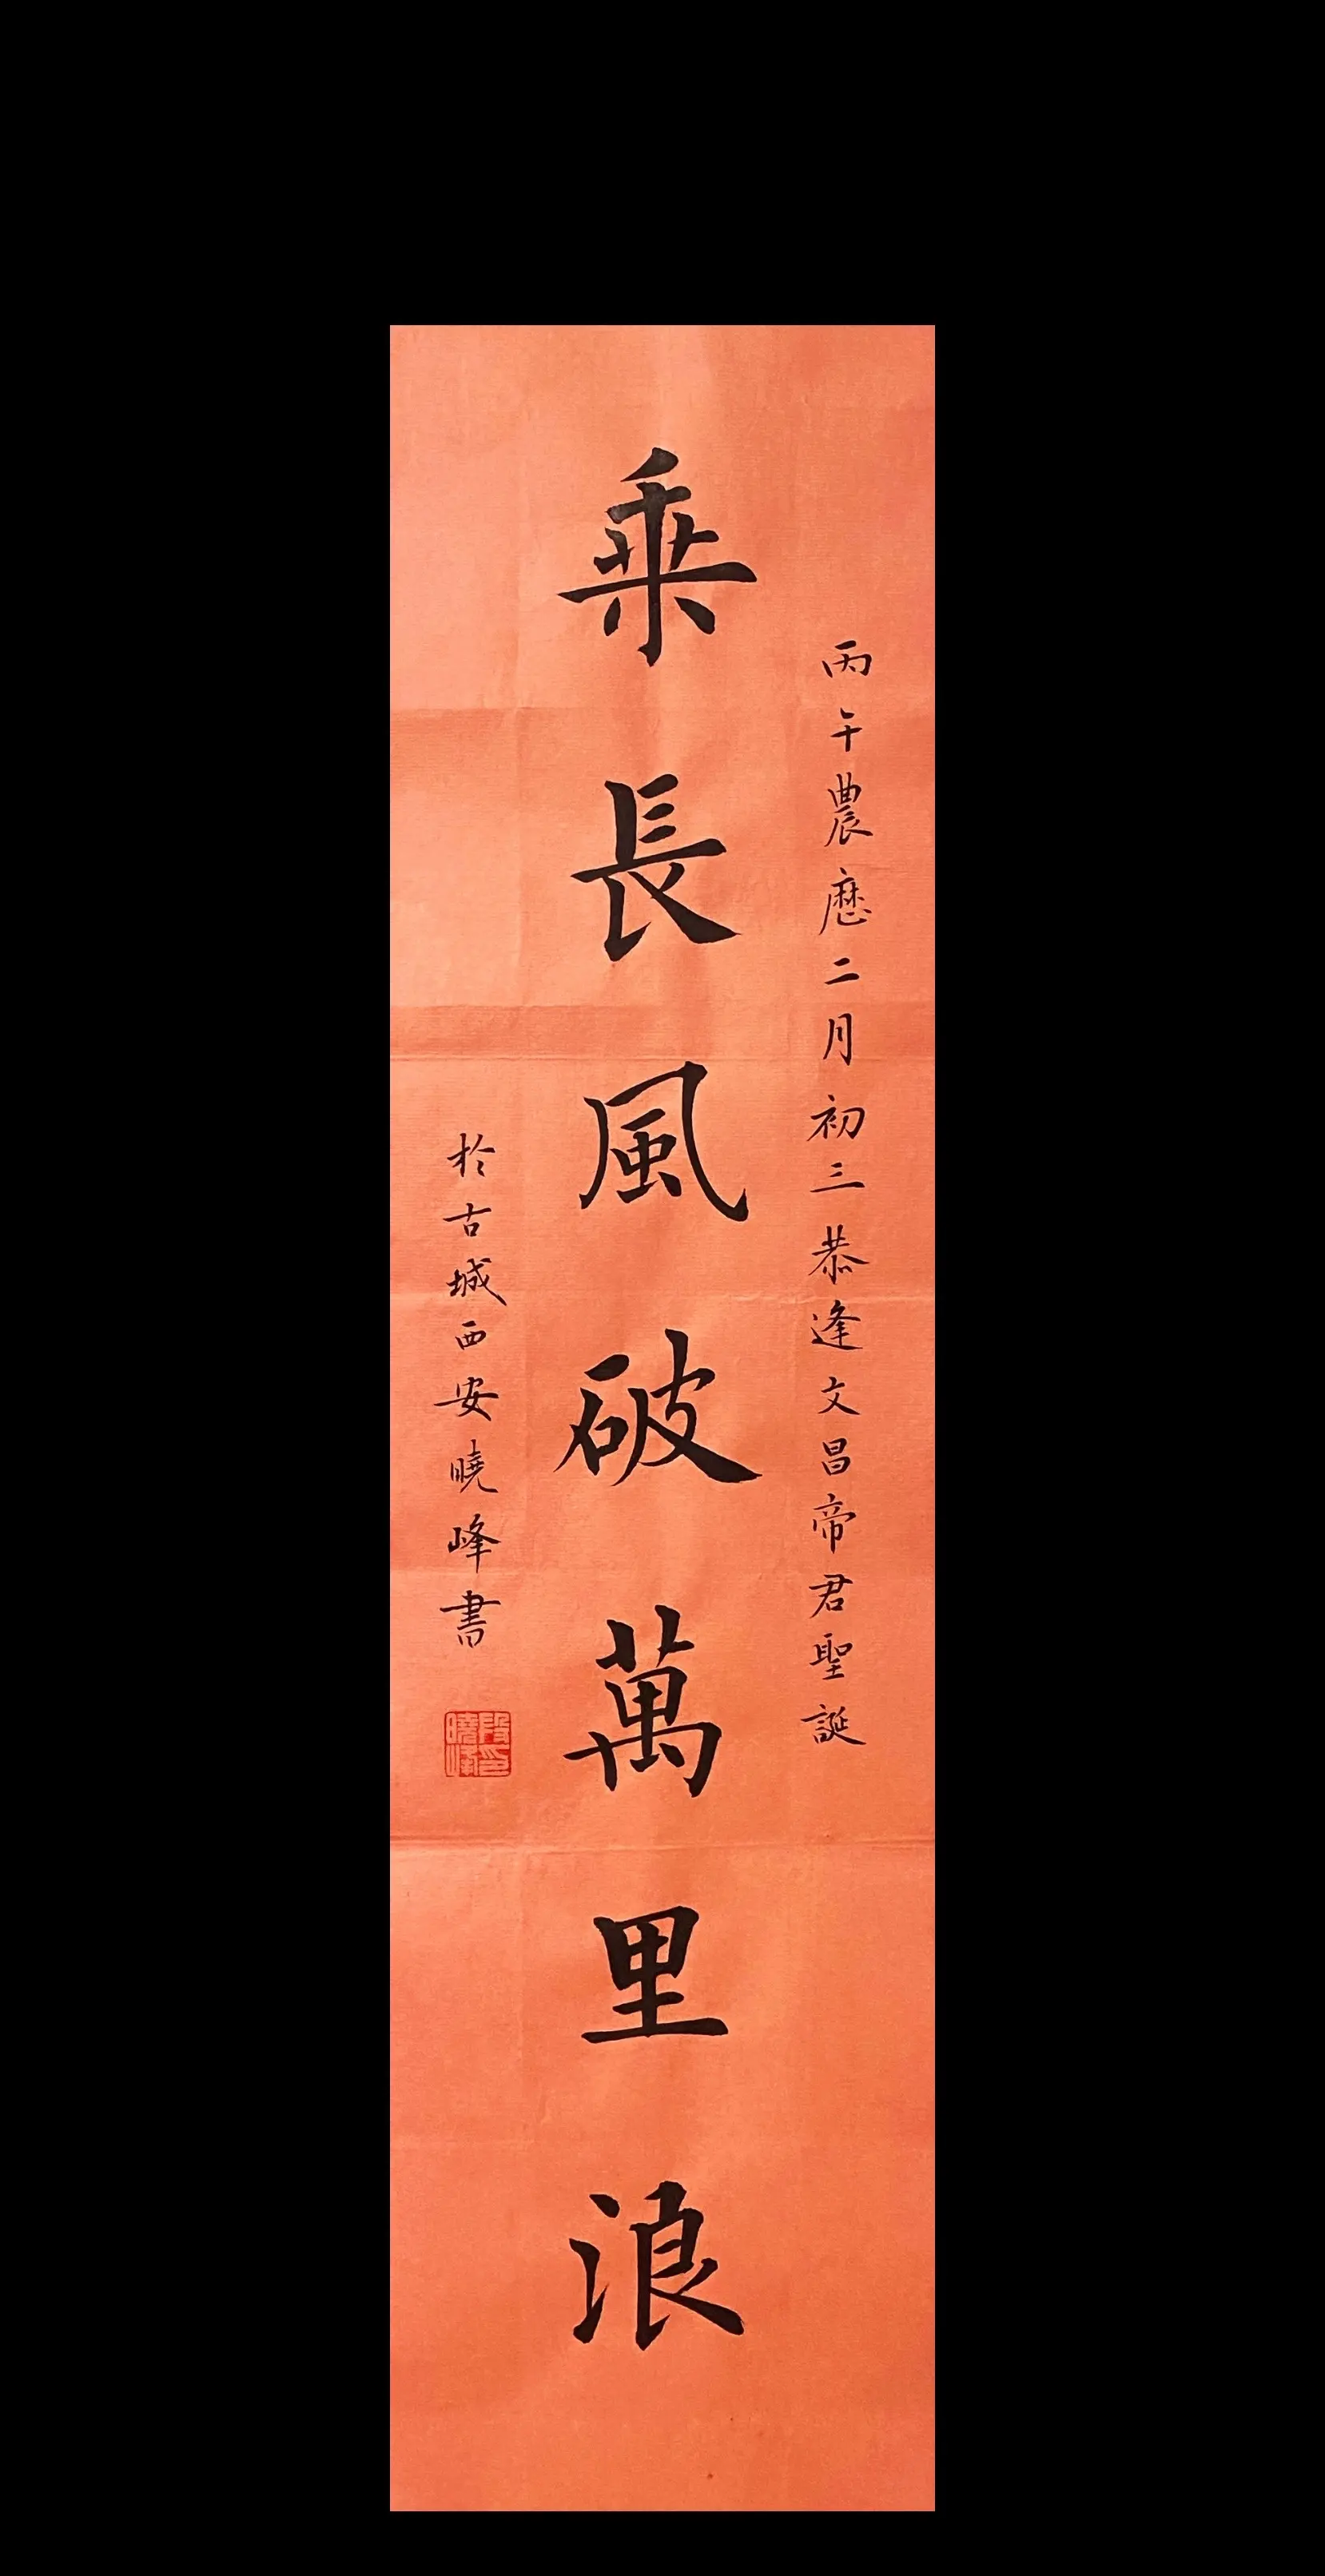 丙午農曆二月初三恭逢文昌帝君聖誕
乘長風破萬里浪
於古城西安曉峰書
段曉峰印